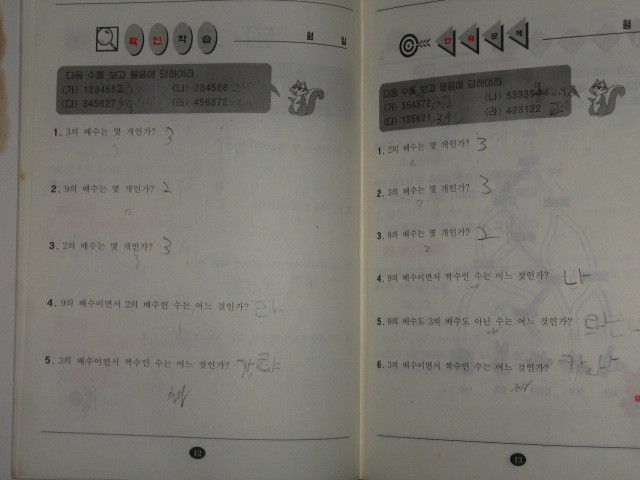 확인학습
월 일
다음 수를 보고 물음에 답하여라.
(가) 1234562 (나) 234568
(다) 345627 (라) 456372
1. 3의 배수는 몇 개인가? 3
2. 9의 배수는 몇 개인가? 2
3. 2의 배수는 몇 개인가? 3
4. 9의 배수이면서 2의 배수인 수는 어느 것인가? 라
5. 3의 배수이면서 짝수인 수는 어느 것인가? 가, 라
12
연습문제
월
다음 수를 보고 물음에 답하여라.
(가) 354372 (나)
(다) 135621 (라) 423122
1. 2의 배수는 몇 개인가? 3
2. 3의 배수는 몇 개인가? 3
3. 9의 배수는 몇 개인가? 2
4. 9의 배수이면서 짝수인 수는 어느 것인가? 나
5. 9의 배수도 3의 배수도 아닌 수는 어느 것인가? 라
6. 3의 배수이면서 짝수인 수는 어느 것인가? 가, 나
13